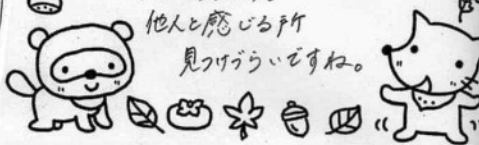 他人と感じる所
見つけづらいですね。